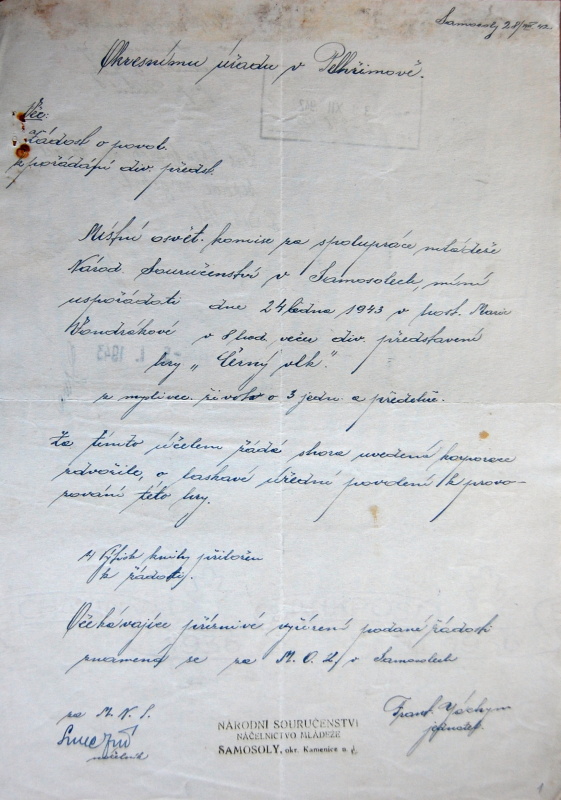 Samosoly 28/XII 42.
Okresnímu úřadu v Pelhřimově.
Věc:
Žádost o povol.
k pořádání div. předst.
Místní osvět. komise za spolupráce mládeže
Národ. Souručenství v Samosolech, míní
uspořádati dne 24 ledna 1943 v host. Marie
Vondrákové v 8 hod. večer div. představení
hry „Černý vlk".
z myslivec. života o 3 jedn. a předehře.
Za tímto účelem žádá shora uvedená korporace
zdvořile, o laskavé úřední povolení k provo-
zování této hry.
1) Výtisk knihy přiložen
k žádosti.
Očekávajíce příznivé vyřízení podané žádosti
znamená se za M. O. K. v Samosolech
za M. N. S.
náčelník
NÁRODNÍ SOURUČENSTVÍ
NÁČELNICTVO MLÁDEŽE
SAMOSOLY, okr. Kamenice n. L.
Frant. Jáchym
jednatel.
1